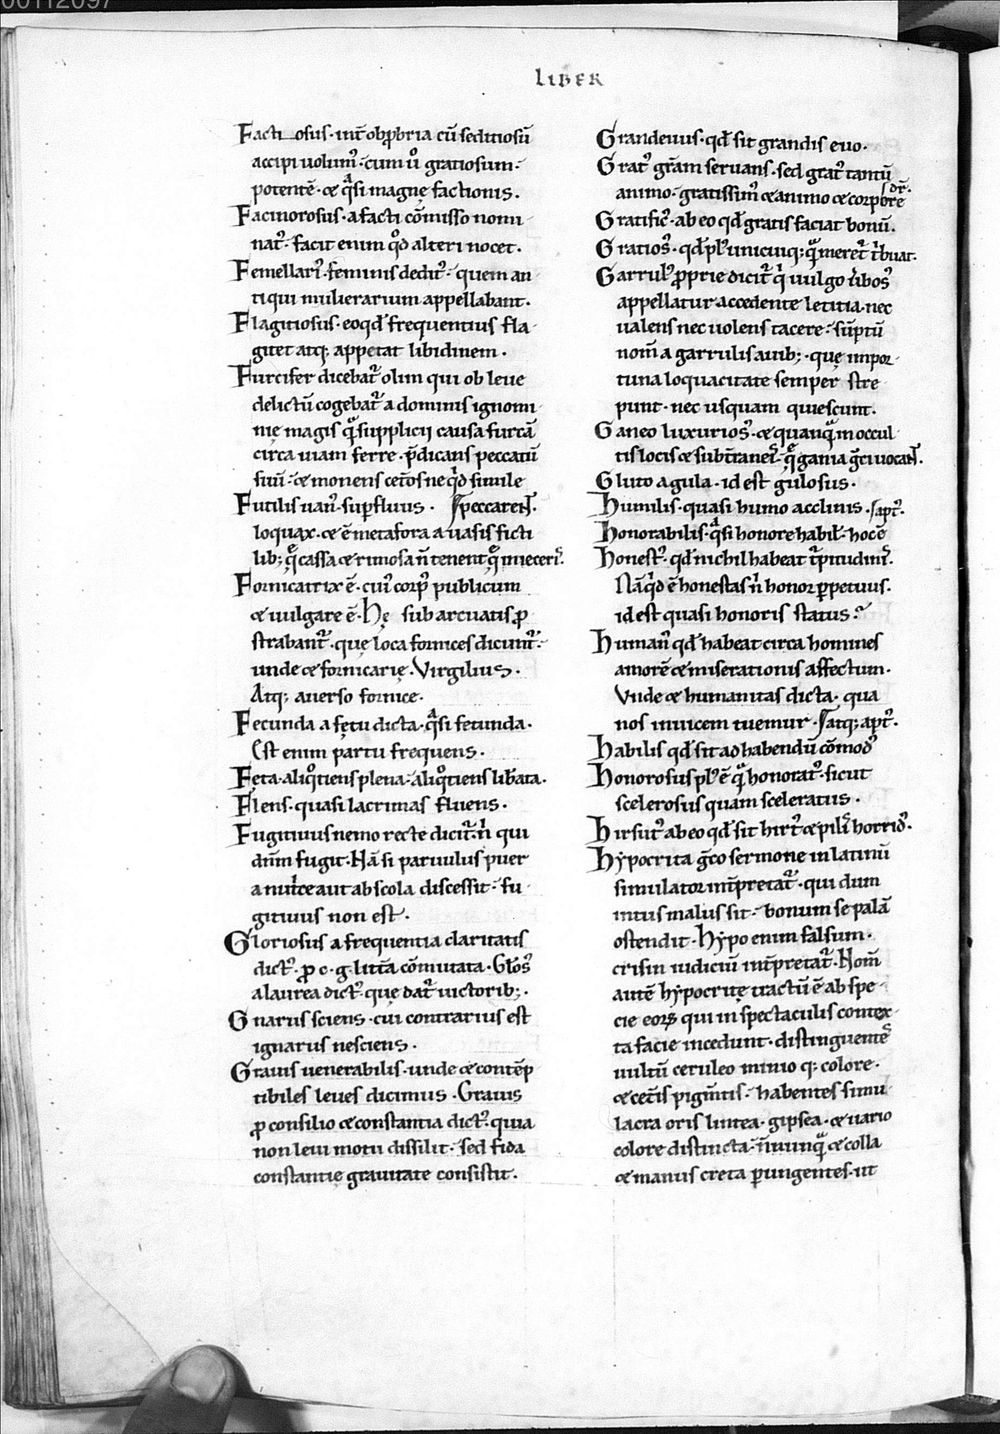 00112097
LIBER
Factiosus · int̄ obprobria cū seditiosū
accipi uolum᷒ · cum u͛o gratiosum ·
potentē · ⁊ q̄si magne factionis ·
Facinorosus · a facti cōmisso nomi
nat᷒ · facit enim qͦd alteri nocet ·
Femellari᷒ · feminis dedit᷒ · quem an
tiqui mulierarium appellabant ·
Flagitiosus · eoqd̄ frequentius fla
gitet atq; appetat libidinem ·
Furcifer dicebat᷑ olim qui ob leue
delictū cogebat᷑ a dominis ignomi
nie magis qͣ supplicij causa furcā
circa uiam ferre · p̄dicans peccatū
suū · ⁊ monens cet͛os ne qͥd simile
Futilis uan᷒ · sup̄fluus · peccarent᷑ ·
loquax · ⁊ ē metafora a uasis ficti
lib; q̄ cassa ⁊ rimosa n̄ tenent q̄ inieceris ·
Fornicatrix ē · cui᷒ corp᷒ publicum
⁊ uulgare ē · Hę sub arcuatis ꝓ
strabant᷑ · que loca fornices dicunt᷑ ·
unde ⁊ fornicarię · Virgilius ·
Atq; auerso fornice ·
Fecunda a fętu dicta · qͣsi fetunda ·
Est enim partu frequens ·
Feta · aliqͦtiens plena · aliqͦtiens lib͛ata ·
Flens · quasi lacrimas fluens ·
Fugitiuus nemo recte dicit᷑ · nͥ qui
dn̄m fugit · Nā si paruulus puer
a nutͥce aut ab scola discessit · fu
gitiuus non est ·
Gloriosus a frequentia claritatis
dict᷒ · ꝓ c · g · litt͛a cōmutata · Gl͛os᷒
a laurea dict᷒ · que dat᷑ uictorib; ·
Gnarus sciens · cui contrarius est
ignarus nesciens ·
Grauis uenerabilis · unde ⁊ contēp
tibiles leues dicimus · Grauis
ꝓ consilio ⁊ constantia dict᷒ · quia
non leui motu dissilit · sed fida
constantie grauitate consistit ·
Grandeuus · qd̄ sit grandis euo ·
Grat᷒ gr̄am seruans · sed grat᷒ tantū
animo · gratissim᷒ ⁊ animo ⁊ corpore dr̄ ·
Gratific᷒ · ab eo qd̄ gratis faciat bonū ·
Gratios᷒ · qd̄ pl᷒ unicuiq; qͣ meret᷑ tͥbuat ·
Garrul᷒ proprie dicit᷑ qͥ uulgo u͛bos᷒
appellatur accedente letitia · nec
ualens nec uolens tacere · sūptū
nom̄ a garrulis auib; · quę impor
tuna loquacitate semper stre
punt · nec usquam quiescunt ·
Ganeo luxurios᷒ · ⁊ quanqͣ in occul
tis locis ⁊ subt͛raneis · q̄ ganea gͣci uocant ·
Gluto a gula · id est gulosus ·
Humilis · quasi humo acclinis · apt᷒ ·
Honorabilis · qͣsi honore habil᷒ · hoc ē
Honest᷒ · qd̄ nichil habeat t᷑pitudinis ·
Nā qͥd ē honestas nͥ honor ꝑpetuus ·
id est quasi honoris status ·
Human᷒ qd̄ habeat circa homines
amorē ⁊ miserationis affectum ·
Vnde ⁊ humanitas dicta · qua
nos inuicem tuemur · atq; apt᷒ ·
Habilis qd̄ sit ad habendū cōmod᷒
Honorosus pl᷒ ē qͣ honorat᷒ · sicut
scelerosus quam sceleratus ·
Hirsut᷒ ab eo qd̄ sit hirt᷒ ⁊ pilis horrid᷒ ·
Hypocrita gͣco sermone in latinū
simulator int͛pretat᷑ · qui dum
intus malus sit · bonum se palā
ostendit · Hypo enim falsum ·
crisin iudiciū int͛pretat᷑ · Nom̄
autē hypocritę tractū ē ab spe
cie eorꝝ qui in spectaculis contec
ta facie incedunt · distinguentes
uultū ceruleo minio q; colore ·
⁊ cet͛is pigm̄tis · habentes simu
lacra oris lintea · gipsea · ⁊ uario
colore distincta · n̄nunqͣ ⁊ colla
⁊ manus creta ꝑungentes · ut